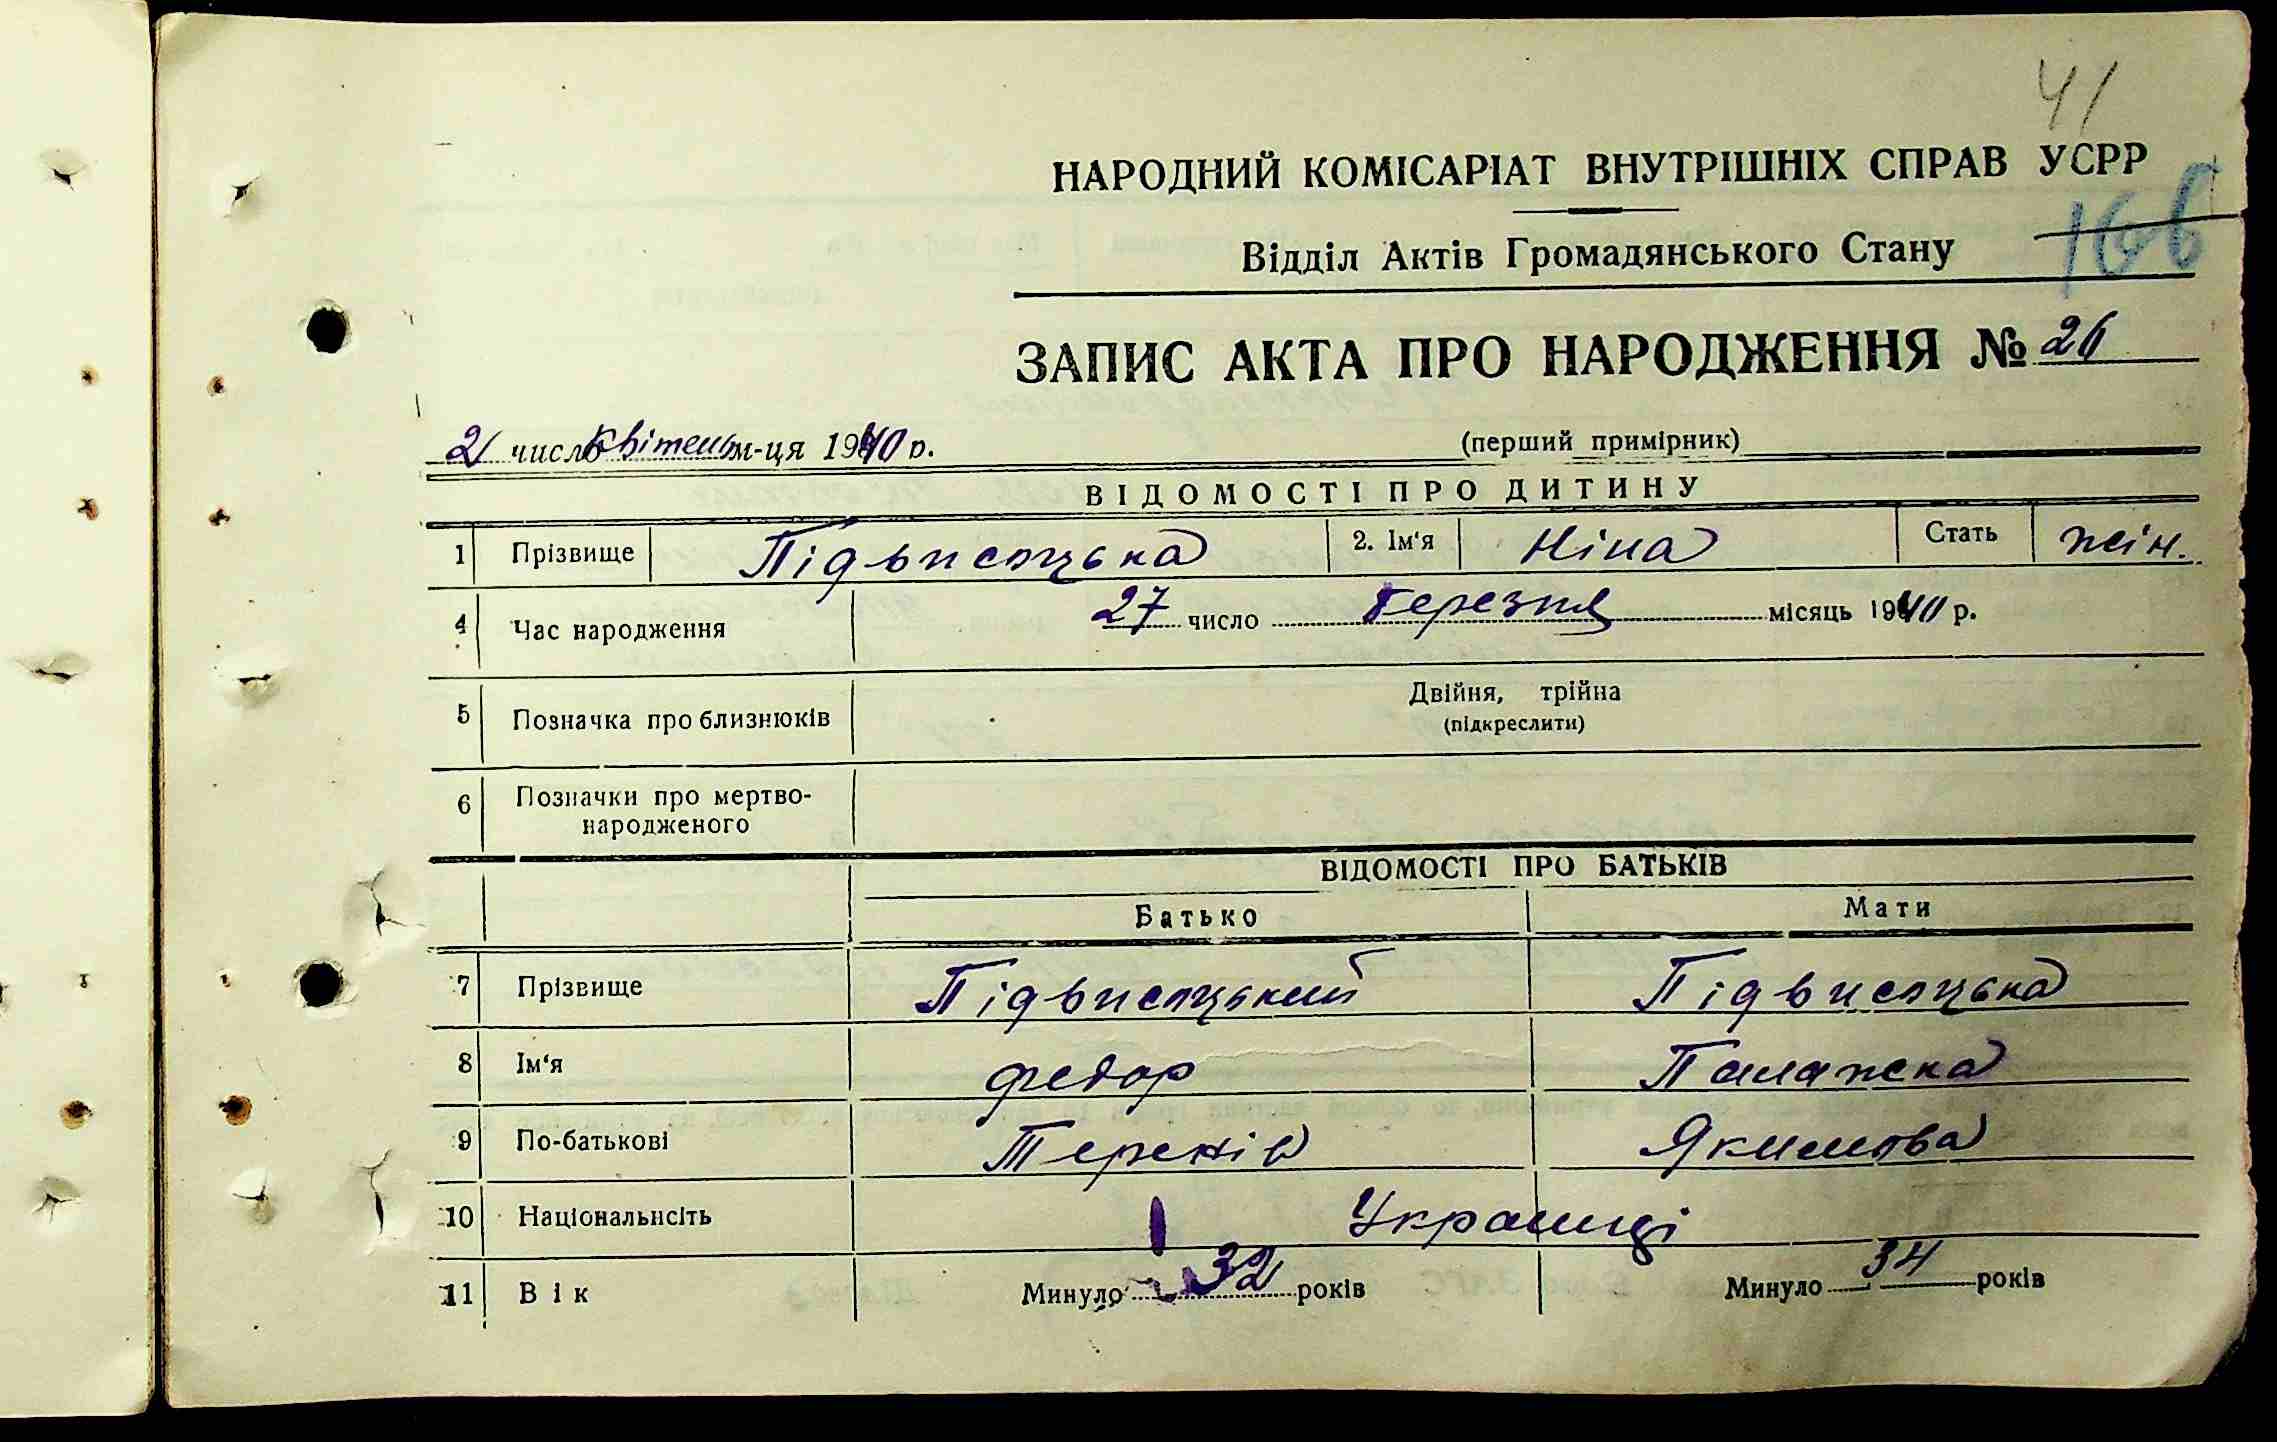 41
НАРОДНИЙ КОМІСАРІАТ ВНУТРІШНІХ СПРАВ УСРР
Відділ Актів Громадянського Стану
ЗАПИС АКТА ПРО НАРОДЖЕННЯ № 26
2 число квітень м-ця 1940 р. (перший примірник)
ВІДОМОСТІ ПРО ДИТИНУ
1 Прізвище Підвисоцька 2. Ім'я Ніна Стать жін.
4 Час народження 27 число Березня місяць 1940 р.
5 Позначка про близнюків Двійня, трійна
(підкреслити)
6 Позначки про мертво-
народженого
ВІДОМОСТІ ПРО БАТЬКІВ
Батько Мати
7 Прізвище Підвисоцький Підвисоцька
8 Ім'я Федор Палажка
9 По-батькові Теренів Якимова
10 Національність Українці
11 Вік Минуло 32 років Минуло 34 років